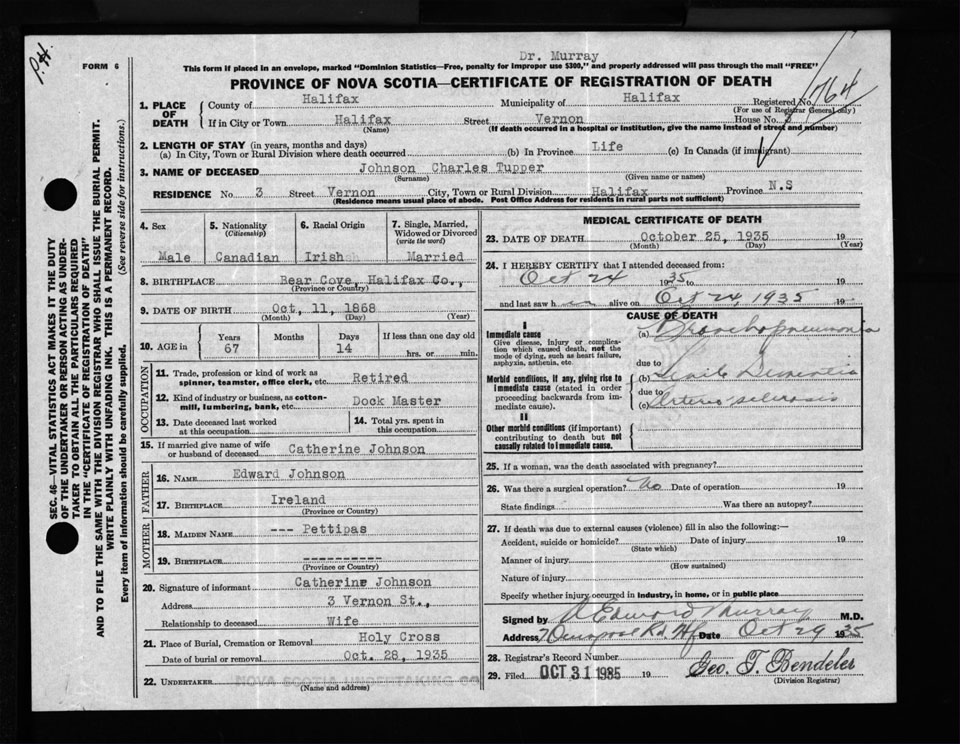 P.H.
FORM 6
Dr. Murray
This form if placed in an envelope, marked "Dominion Statistics—Free, penalty for improper use $300," and properly addressed will pass through the mail "FREE"
PROVINCE OF NOVA SCOTIA—CERTIFICATE OF REGISTRATION OF DEATH
1. PLACE OF DEATH County of Halifax Municipality of Halifax Registered No. 764
(For use of Registrar General only)
If in City or Town Halifax Street Vernon House No. 3
(Name) (If death occurred in a hospital or institution, give the name instead of street and number)
2. LENGTH OF STAY (in years, months and days)
(a) In City, Town or Rural Division where death occurred (b) In Province Life (c) In Canada (if immigrant)
3. NAME OF DECEASED Johnson Charles Tupper
(Surname) (Given name or names)
RESIDENCE No. 3 Street Vernon City, Town or Rural Division Halifax Province N.S
(Residence means usual place of abode. Post Office Address for residents in rural parts not sufficient)
4. Sex 5. Nationality (Citizenship) 6. Racial Origin 7. Single, Married, Widowed or Divorced (write the word)
Male Canadian Irish Married
8. BIRTHPLACE Bear Cove, Halifax Co.,
(Province or Country)
9. DATE OF BIRTH Oct, 11, 1868
(Month) (Day) (Year)
10. AGE in Years Months Days If less than one day old
67 14 hrs. or min.
OCCUPATION
11. Trade, profession or kind of work as spinner, teamster, office clerk, etc. Retired
12. Kind of industry or business, as cotton-mill, lumbering, bank, etc. Dock Master
13. Date deceased last worked at this occupation 14. Total yrs. spent in this occupation
15. If married give name of wife or husband of deceased Catherine Johnson
FATHER
16. NAME Edward Johnson
17. BIRTHPLACE Ireland
(Province or Country)
MOTHER
18. MAIDEN NAME --- Pettipas
19. BIRTHPLACE ----------
(Province or Country)
20. Signature of informant Catherine Johnson
Address 3 Vernon St.,
Relationship to deceased Wife
21. Place of Burial, Cremation or Removal Holy Cross
Date of burial or removal Oct. 28, 1935
22. UNDERTAKER
(Name and address)
MEDICAL CERTIFICATE OF DEATH
23. DATE OF DEATH October 25, 1935 19
(Month) (Day) (Year)
24. I HEREBY CERTIFY that I attended deceased from:
Oct 24 1935 to 19
and last saw h alive on Oct 24, 1935 19
CAUSE OF DEATH
I
Immediate cause (a) Bronchopneumonia
Give disease, injury or complication which caused death, not the mode of dying, such as heart failure, asphyxia, asthenia, etc.
due to
Morbid conditions, if any, giving rise to immediate cause (stated in order proceeding backwards from immediate cause). (b) Senile Dementia
due to
(c) Arterio sclerosis
II
Other morbid conditions (if important) contributing to death but not causally related to immediate cause.
25. If a woman, was the death associated with pregnancy?
26. Was there a surgical operation? No Date of operation 19
State findings Was there an autopsy?
27. If death was due to external causes (violence) fill in also the following:—
Accident, suicide or homicide? Date of injury 19
(State which)
Manner of injury
(How sustained)
Nature of injury
Specify whether injury occurred in industry, in home, or in public place
Signed by Edward Murray M.D.
Address Rd Hfx Date Oct 29 1935
28. Registrar's Record Number
29. Filed OCT 31 1935 19 Geo. T. Bendeler
(Division Registrar)
SEC. 46—VITAL STATISTICS ACT MAKES IT THE DUTY
OF THE UNDERTAKER OR PERSON ACTING AS UNDER-
TAKER TO OBTAIN ALL THE PARTICULARS REQUIRED
IN THE "CERTIFICATE OF REGISTRATION OF DEATH"
AND TO FILE THE SAME WITH THE DIVISION REGISTRAR WHO SHALL ISSUE THE BURIAL PERMIT.
WRITE PLAINLY WITH UNFADING INK. THIS IS A PERMANENT RECORD.
Every item of information should be carefully supplied. (See reverse side for instructions.)